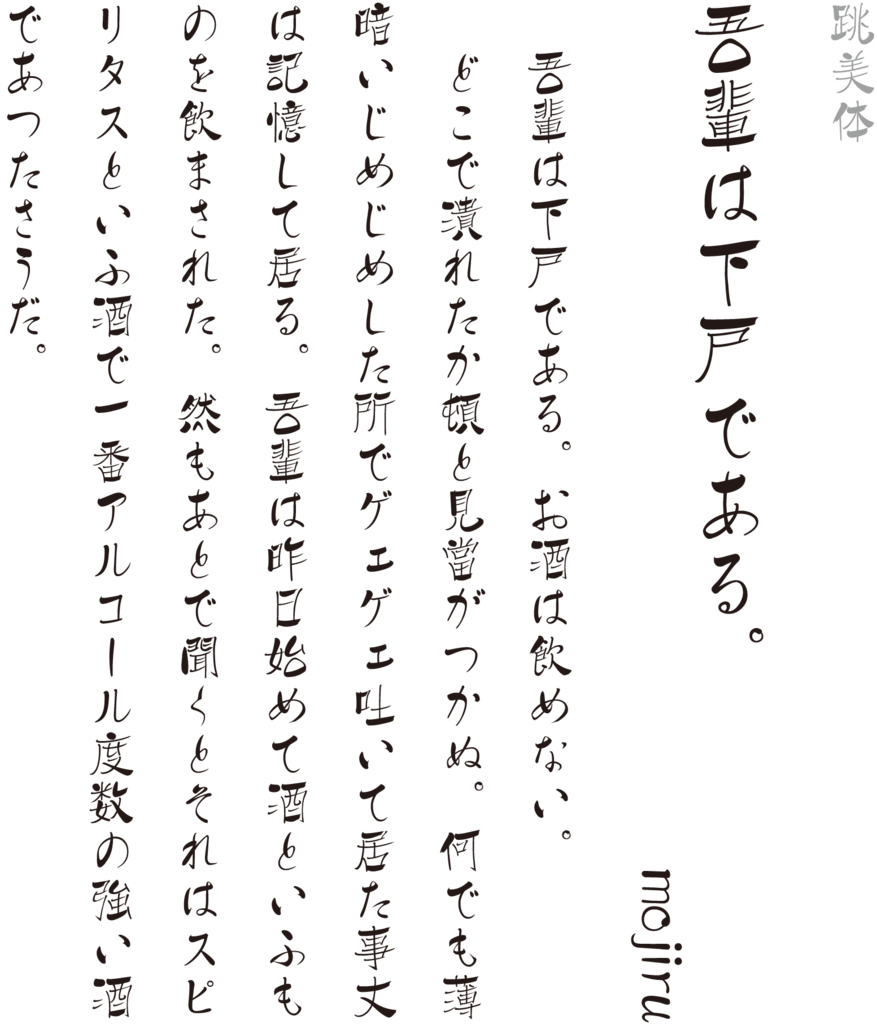 跳美体
吾輩は下戸である。
mojiru
吾輩は下戸である。お酒は飲めない。
どこで潰れたか頓と見當がつかぬ。何でも薄
暗いじめじめした所でゲエゲエ吐いて居た事丈
は記憶して居る。吾輩は昨日始めて酒といふも
のを飲まされた。然もあとで聞くとそれはスピ
リタスといふ酒で一番アルコール度数の強い酒
であつたさうだ。